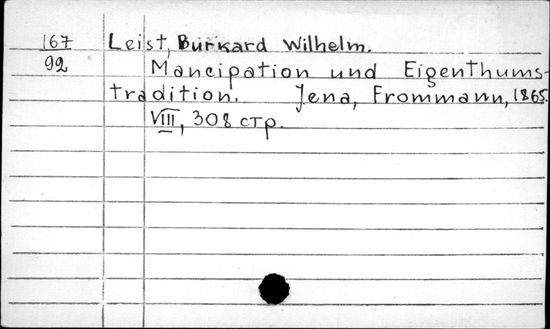 167 Leist, Burkard Wilhelm.
92 Mancipation und Eigenthums-
tradition. Jena, Frommann, 1865.
VIII, 308 стр.